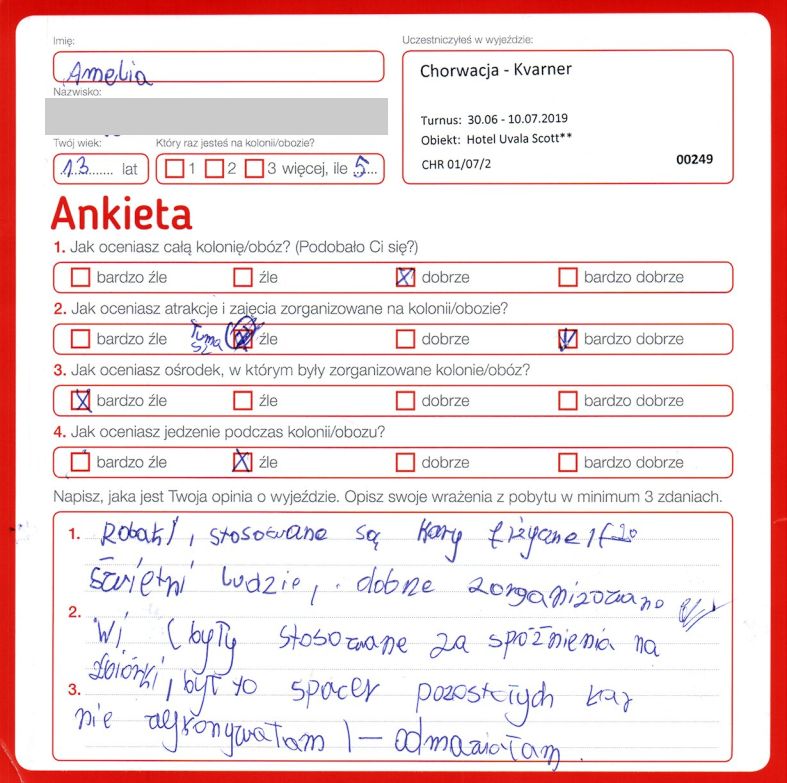 Imię:
Amelia
Nazwisko:
Twój wiek:
13 lat
Który raz jesteś na kolonii/obozie?
1 2 3 więcej, ile 5
Uczestniczyłeś w wyjeździe:
Chorwacja - Kvarner
Turnus: 30.06 - 10.07.2019
Obiekt: Hotel Uvala Scott**
CHR 01/07/2 00249
Ankieta
1. Jak oceniasz całą kolonię/obóz? (Podobało Ci się?)
bardzo źle źle dobrze bardzo dobrze
2. Jak oceniasz atrakcje i zajęcia zorganizowane na kolonii/obozie?
bardzo źle źle dobrze bardzo dobrze
3. Jak oceniasz ośrodek, w którym były zorganizowane kolonie/obóz?
bardzo źle źle dobrze bardzo dobrze
4. Jak oceniasz jedzenie podczas kolonii/obozu?
bardzo źle źle dobrze bardzo dobrze
Napisz, jaka jest Twoja opinia o wyjeździe. Opisz swoje wrażenia z pobytu w minimum 3 zdaniach.
1. Robaki, stosowane są kary fizyczne
świetni ludzie, dobrze zorganizowano
2.
(były stosowane za spóźnienia na
3. zbiórki, był to spacer pozostałych kar
nie wykonywałam) - odmawiałam